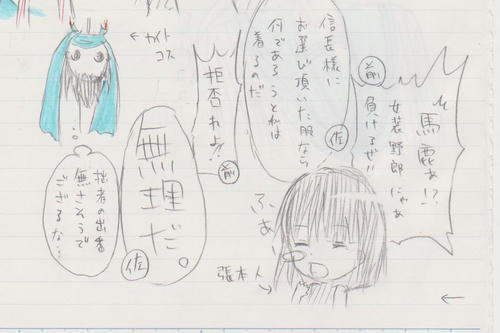 馬鹿ぁ!?
女装野郎にゃぁ
負けるぜ!!
前
信長様に
お選び頂いた服なら
何であろうとれは
着るのだ
佐
拒否れよ!!
前
無理だ。
佐
ふぁ
張本人
←カイト
コス
拙者の出番
無さそうで
ござるな…